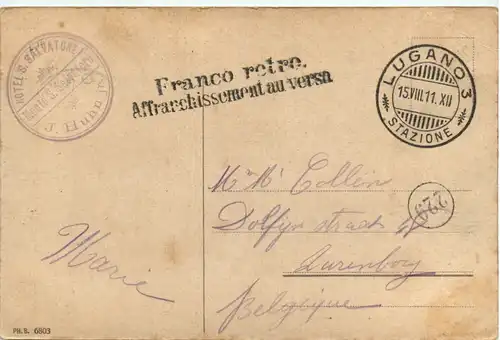 HOTEL S. SALVATORE
Franco retro.
Affranchissement au verso
LUGANO 3
15.VIII.11. XII
STAZIONE
Mr Mr Collin
Dolfyn straat
Zurenborg
Belgique
Marie
229
PH.B. 6803